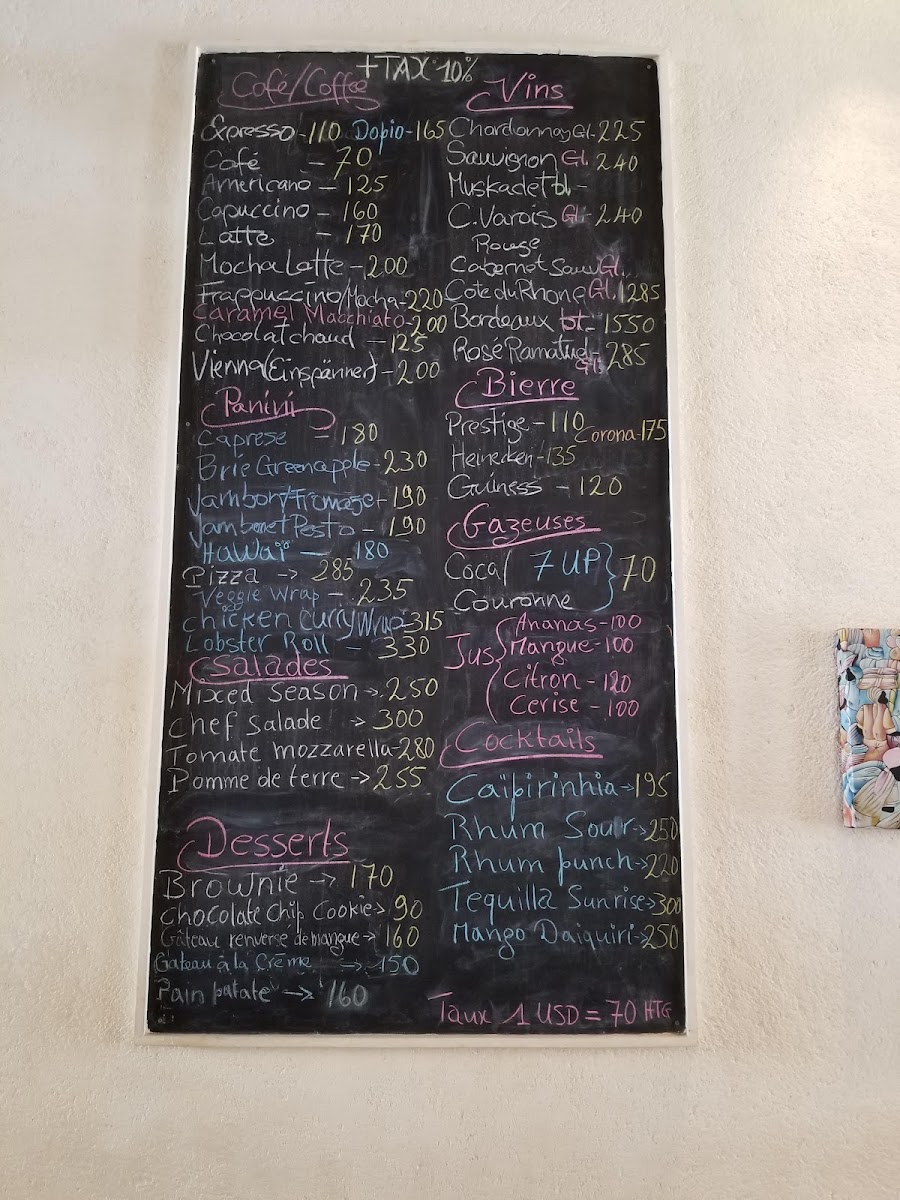 +TAX 10%
Café/Coffee
Expresso - 110 Dopio - 165
Café - 70
Americano - 125
Capuccino - 160
Latte - 170
Mocha Latte - 200
Frappuccino/Mocha - 220
Caramel Macchiato - 200
Chocolat chaud - 125
Vienna (Einspänner) - 200
Panini
Caprese - 180
Brie Greenapple - 230
Jambon/Fromage - 190
Jambon et Pesto - 190
Hawaï - 180
Pizza -> 285
Veggie Wrap - 235
chicken curry Wrap 315
Lobster Roll - 330
Salades
Mixed season -> 250
chef salade -> 300
Tomate mozzarella - 280
Pomme de terre -> 255
Desserts
Brownie -> 170
chocolate chip Cookie -> 90
Gâteau renversé de mangue -> 160
Gateau à la Crème -> 150
Pain patate -> 160
Vins
Chardonnay Gl. 225
Sauvignon Gl. 240
Muskadet bl -
C. Varois Gl. 240
Rouge
Cabernet Sauv Gl.
Cote du Rhone Gl. 285
Bordeaux bt. 1550
Rosé Ramatuel - 285
Gl.
Bierre
Prestige - 110
Corona - 175
Heineken - 135
Guiness - 120
Gazeuses
Coca/ 7 UP } 70
Couronne
Jus { Ananas - 100
Mangue - 100
Citron - 120
Cerise - 100
Cocktails
Caïpirinhia -> 195
Rhum Sour -> 250
Rhum punch -> 220
Tequilla Sunrise -> 300
Mango Daiquiri -> 250
Taux 1 USD = 70 HTG